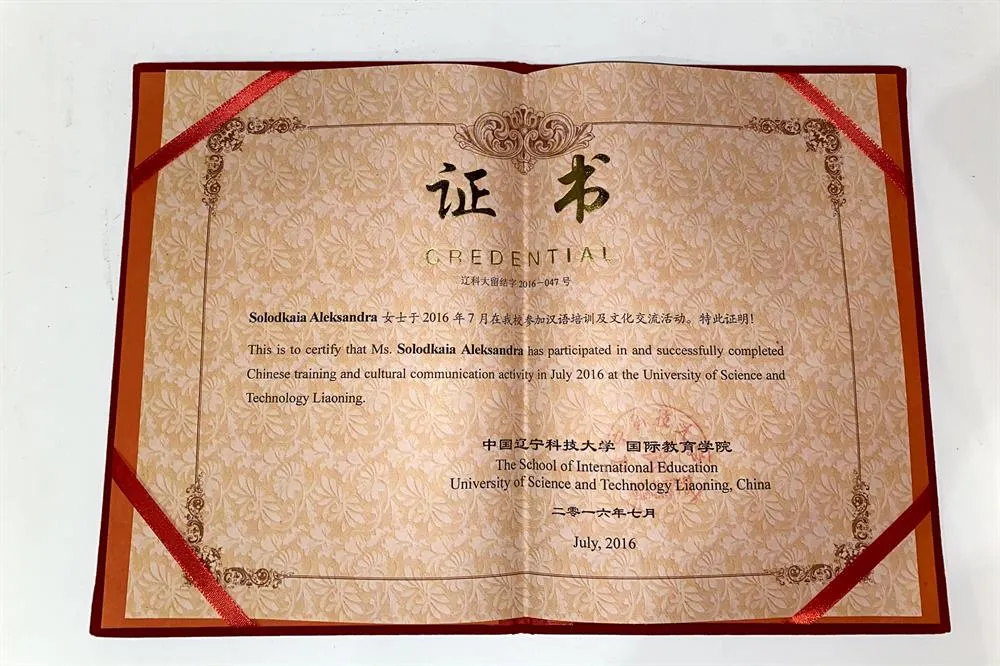 证书
CREDENTIAL
辽科大留结字2016-047号
Solodkaia Aleksandra 女士于2016年7月在我校参加汉语培训及文化交流活动。特此证明!
This is to certify that Ms. Solodkaia Aleksandra has participated in and successfully completed
Chinese training and cultural communication activity in July 2016 at the University of Science and
Technology Liaoning.
中国辽宁科技大学 国际教育学院
The School of International Education
University of Science and Technology Liaoning, China
二零一六年七月
July, 2016